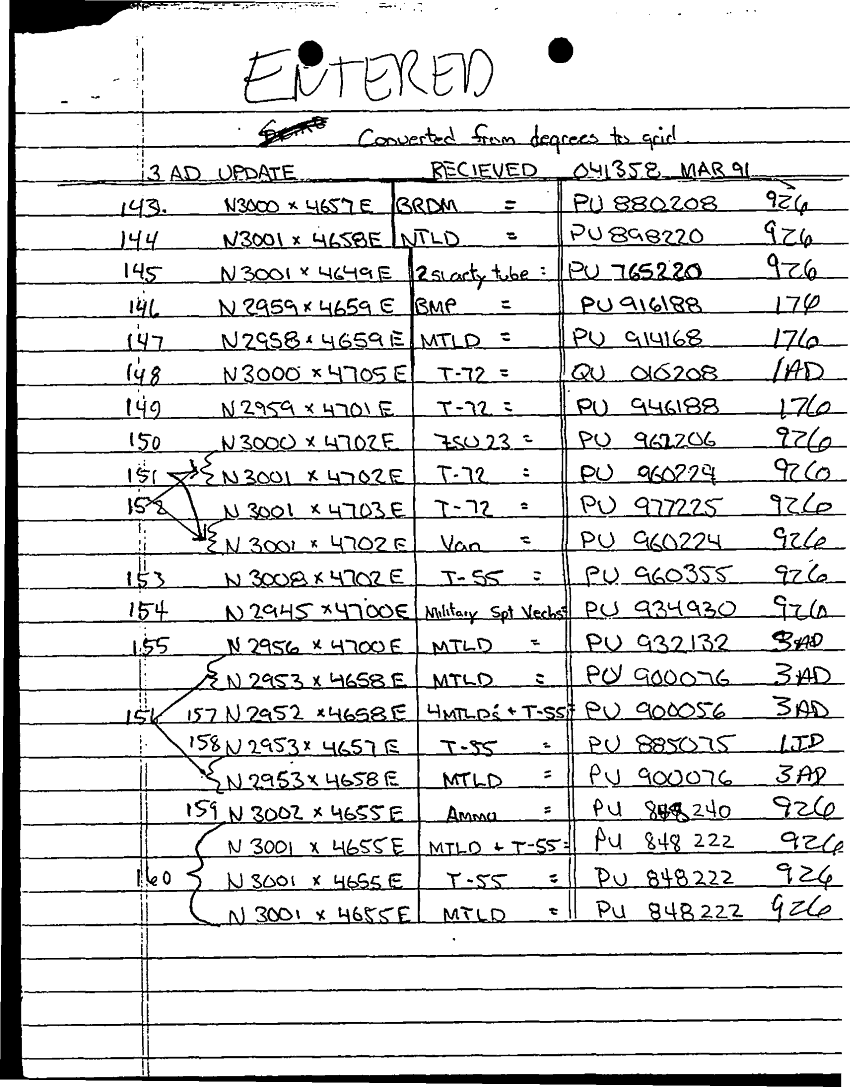 ENTERED
Converted from degrees to grid
3 AD UPDATE RECIEVED 041358 MAR 91
143. N3000 x 4657E BRDM = PU 880208 926
144 N3001 x 4658E NTLD = PU 898220 926
145 N3001 x 4649E 2 slarty tube = PU 765220 926
146 N2959 x 4659E BMP = PU 916188 176
147 N2958 x 4659E MTLD = PU 914168 176
148 N3000 x 4705E T-72 = QU 016208 1AD
149 N2959 x 4701E T-72 = PU 946188 176
150 N3000 x 4702E ZSU 23 = PU 961206 926
151 N3001 x 4702E T-72 = PU 960224 926
152 N3001 x 4703E T-72 = PU 977225 926
N3001 x 4702E Van = PU 960224 926
153 N3008 x 4702E T-55 = PU 960355 926
154 N2945 x 4700E Military Spt Vechs = PU 934930 926
155 N2956 x 4700E MTLD = PU 932132 3AD
N2953 x 4658E MTLD = PU 900076 3AD
156 157 N2952 x 4658E 4MTLD's + T-55 = PU 900056 3AD
158 N2953 x 4657E T-55 = PU 885075 1ID
N2953 x 4658E MTLD = PU 900076 3AD
159 N3002 x 4655E Ammo = PU 848 240 926
N3001 x 4655E MTLD + T-55 = PU 848 222 926
160 N3001 x 4655E T-55 = PU 848222 926
N3001 x 4655E MTLD = PU 848222 926